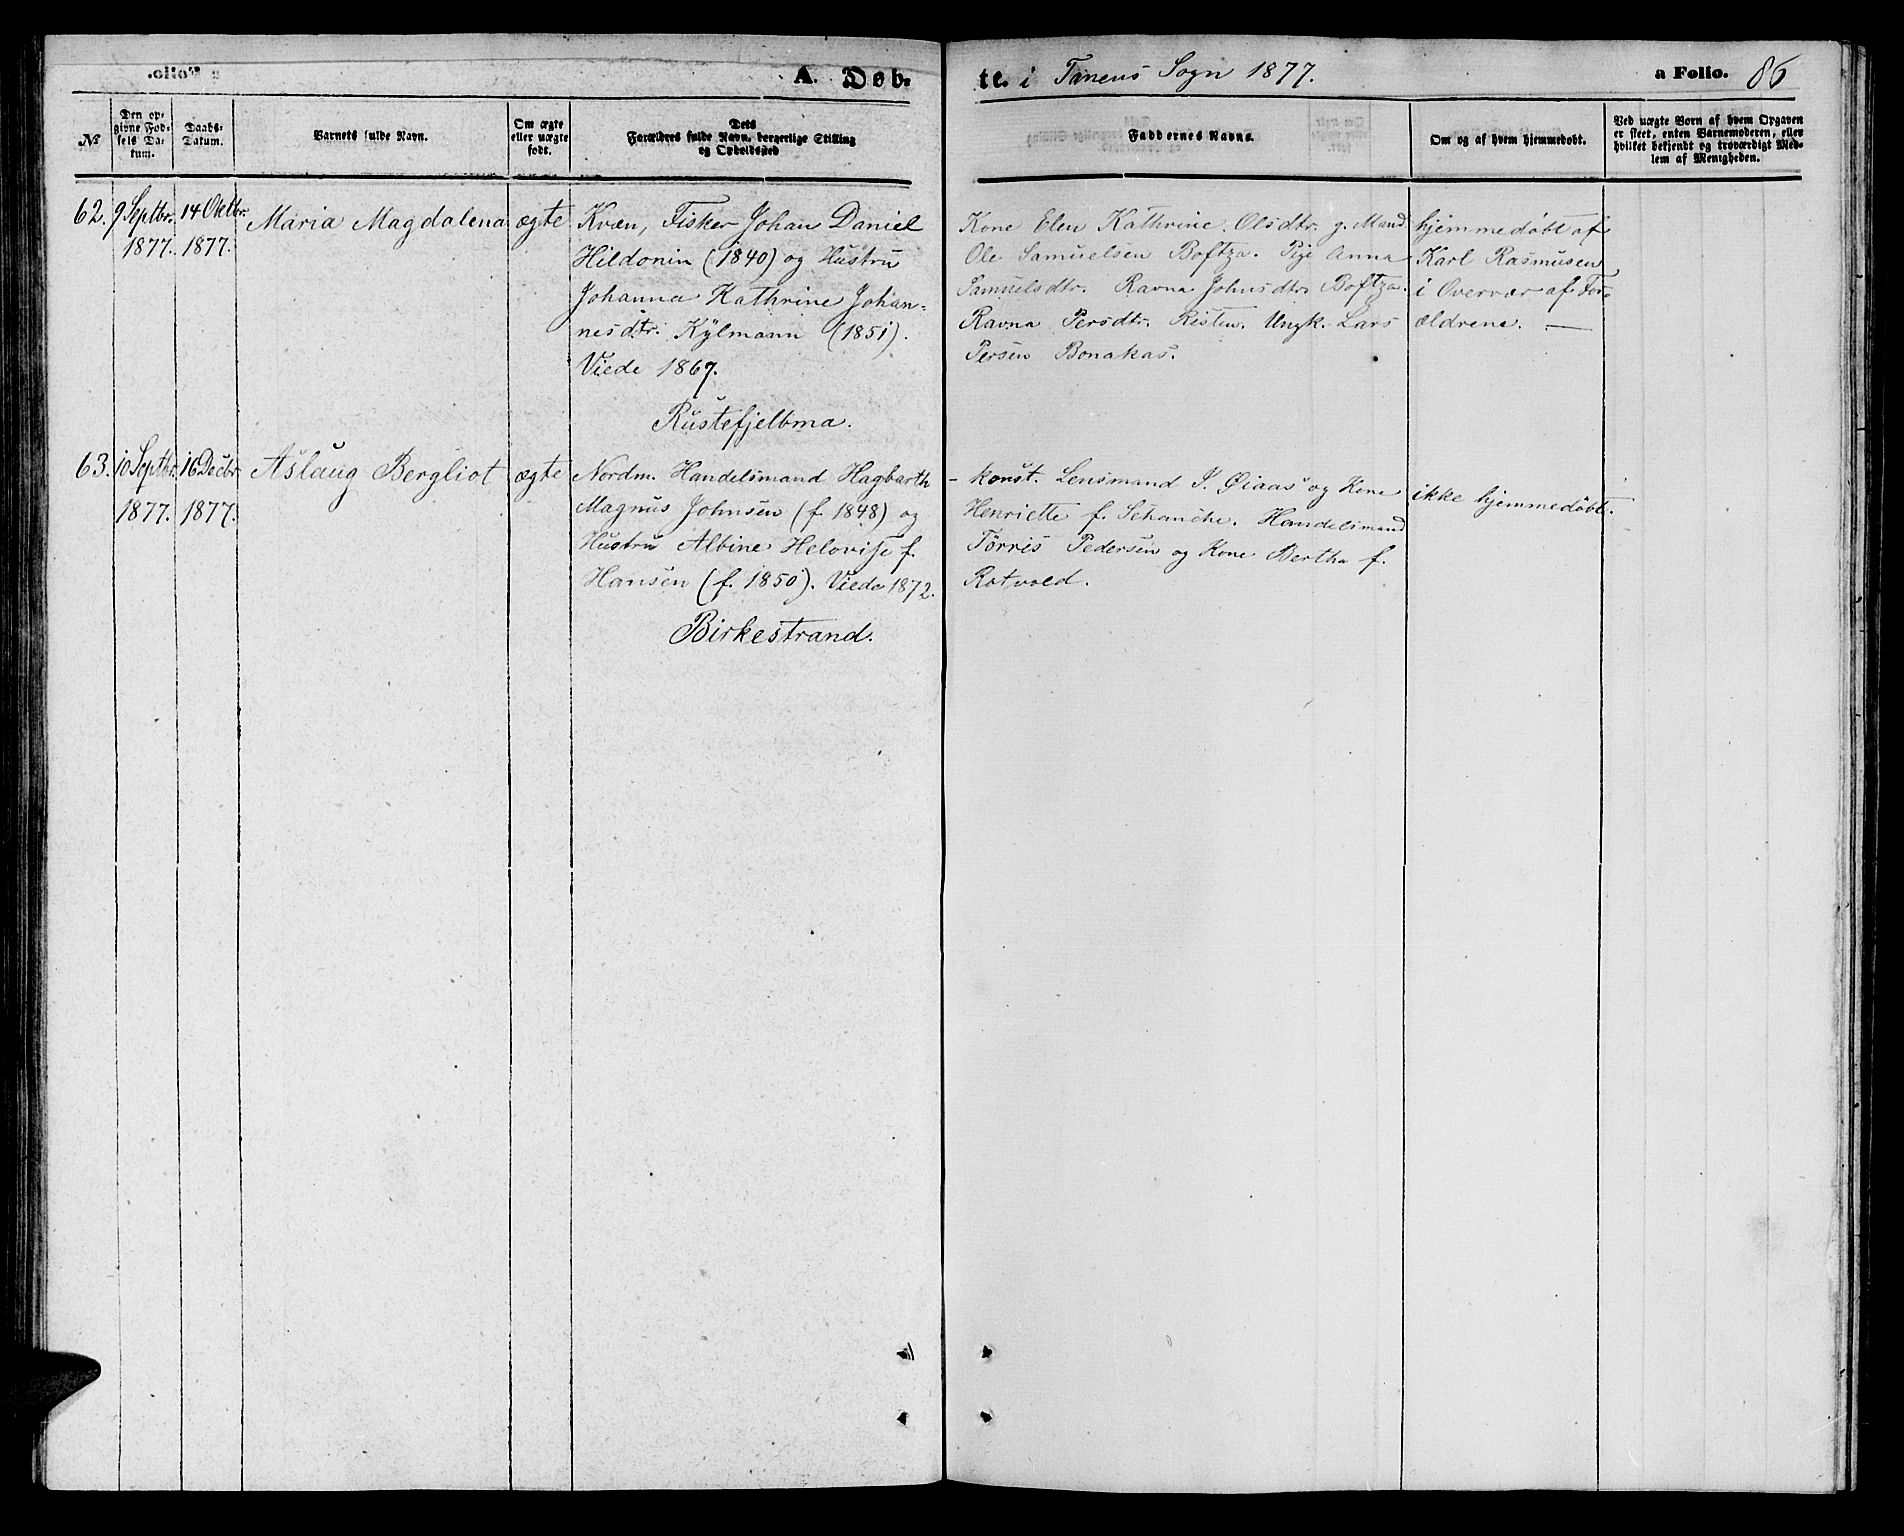 A. Døb-
te. i Tanens Sogn 1877.
a Folio. 86
No
Den op-
givne Fød-
sels Da-
tum.
Daabs-
Datum.
Barnets fulde Navn.
Om ægte
eller uægte
født.
Dets
Forældres fulde Navn, borgerlige Stilling
og Opholdssted
Faddernes Navne.
Om og af hvem hjemmedøbt.
Ved uægte Børn af hvem Opgaven
er skeet, enten Barnemoderen, eller
hvilket bekjendt og troværdigt Med-
lem af Menigheden.
62.
9 Septbr.
1877.
14 Oktbr.
1877.
Maria Magdalena
ægte
Kvæn, Fisker Johan Daniel
Hildonin (1840) og Hustru
Johanna Kathrine Johan-
nesdtr. Kylmann (1851).
Viede 1867.
Rustefjelbma.
Kone Elen Kathrine Olsdtr. g. Mand
Ole Samuelsen Boftza. Pige Anna
Samuelsdtr. Ravna Johnsdtr Boftza.
Ravna Persdtr. Risten. Ungk. Lars
Persen Bonakas.
hjemmedøbt af
Karl Rasmusen
i Overvær af For-
ældrene. —
63.
10 Septbr.
1877.
16 Decbr.
1877.
Aslaug Bergliot
ægte
Nordm. Handelsmand Hagbarth
Magnus Johnsen (f. 1848) og
Hustru Albine Helovise f.
Hansen (f. 1850). Viede 1872.
Birkestrand.
- konst. Lensmand I. Øiaas og Kone
Henriette f. Schanche. Handelsmand
Tørris Pedersen og Kone Bertha f.
Rotvold.
ikke hjemmedøbt.